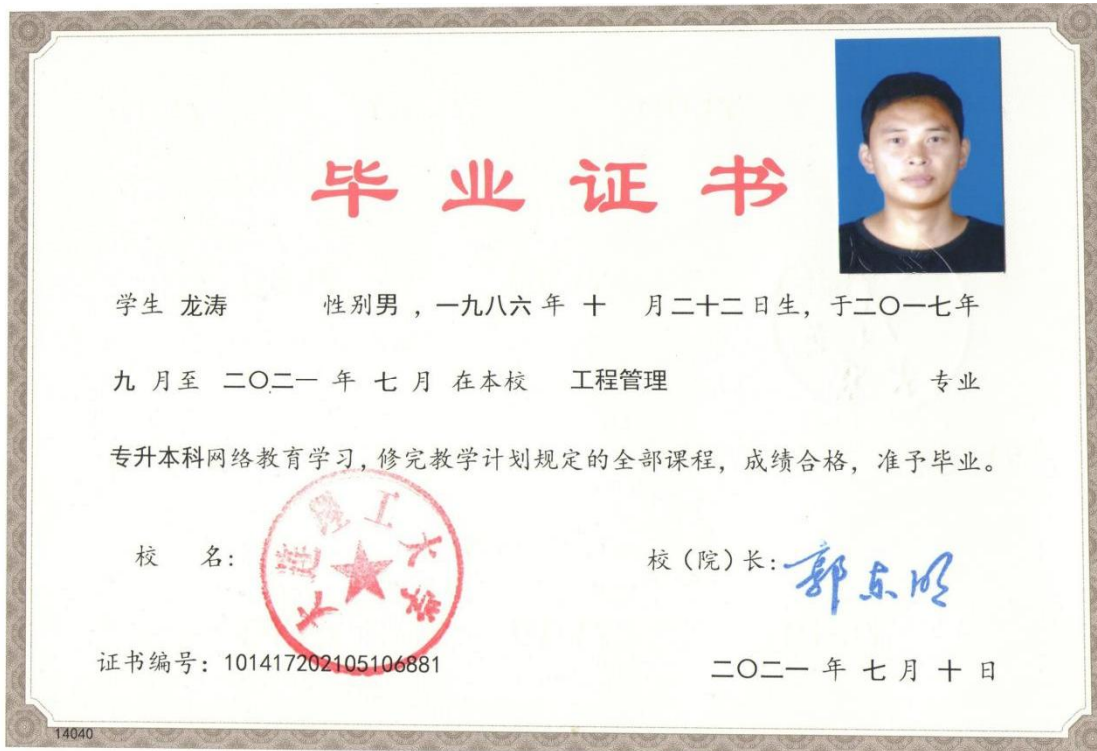 毕业证书
学生 龙涛 性别男，一九八六年 十 月二十二日生，于二〇一七年
九 月至 二〇二一 年 七 月 在本校 工程管理 专业
专升本科网络教育学习，修完教学计划规定的全部课程，成绩合格，准予毕业。
校 名：
大连理工大学
校（院）长：郭东明
证书编号：101417202105106881
二〇二一 年 七 月 十 日
14040